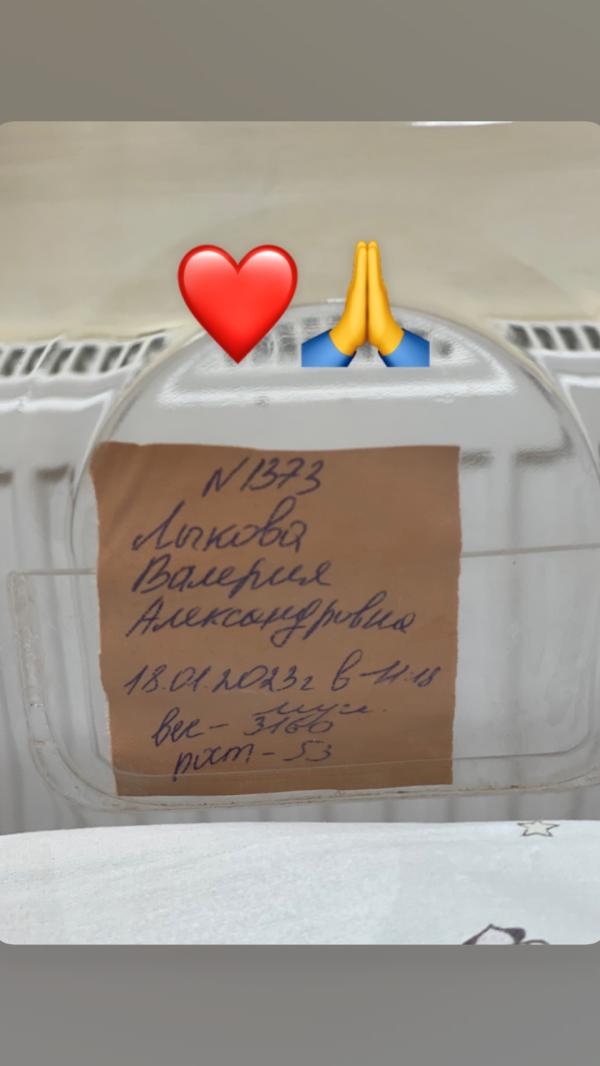 N1373
Лыкова
Валерия
Александровна
18.01.2023г в-11.18
муж.
вес- 3160
рост- 53